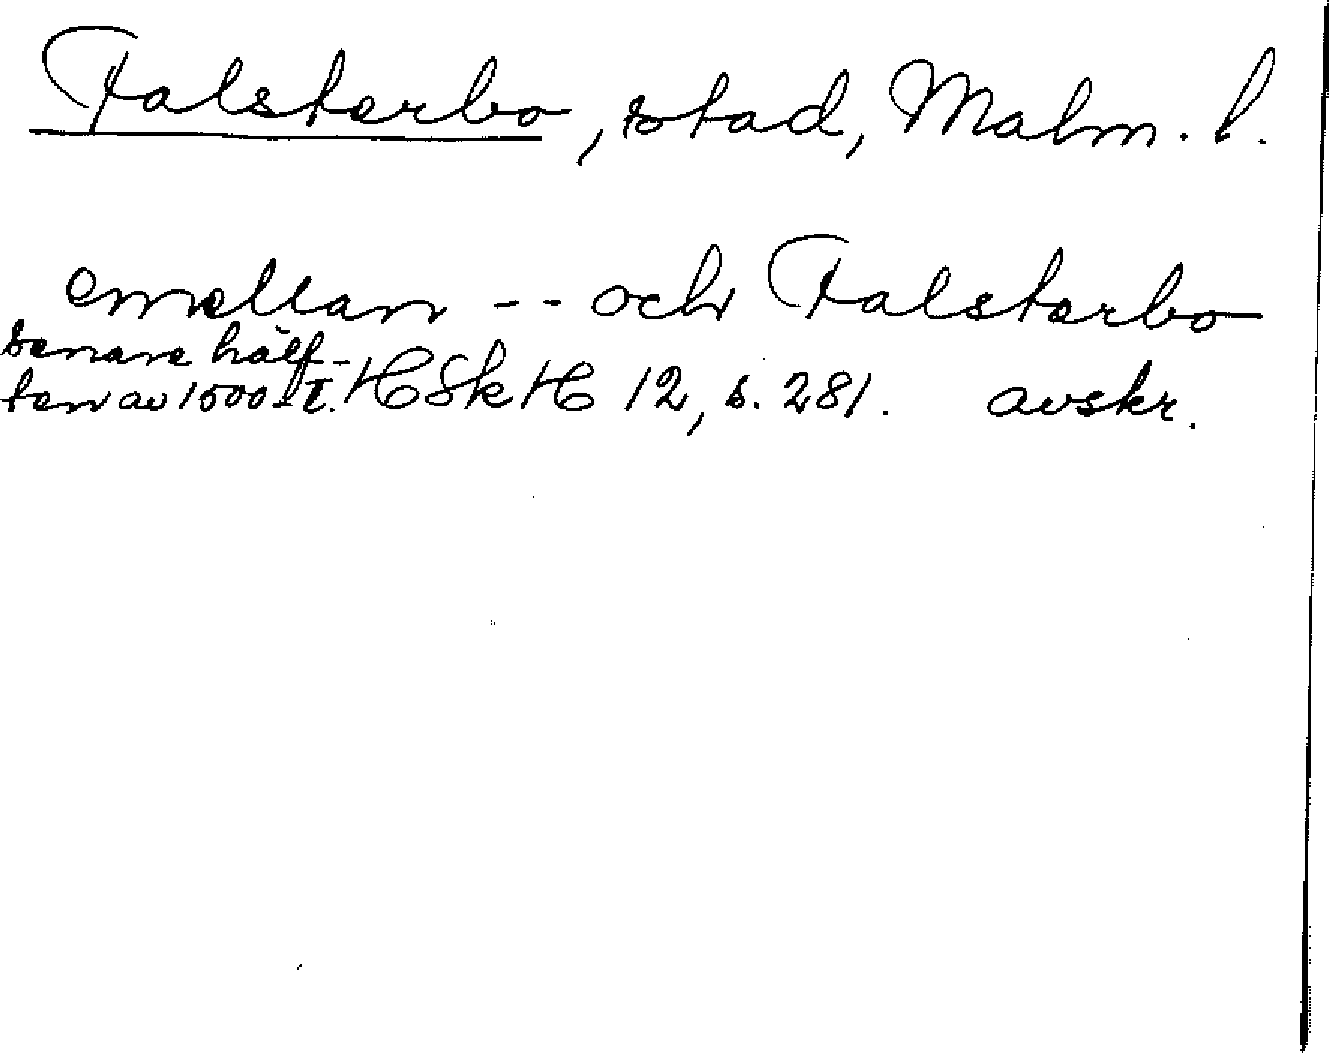 Falsterbo, stad, Malm. l.
emellan -- och Falsterbo
senare hälf-
ten av 1500-t. HSkH 12, s. 281. avskr.